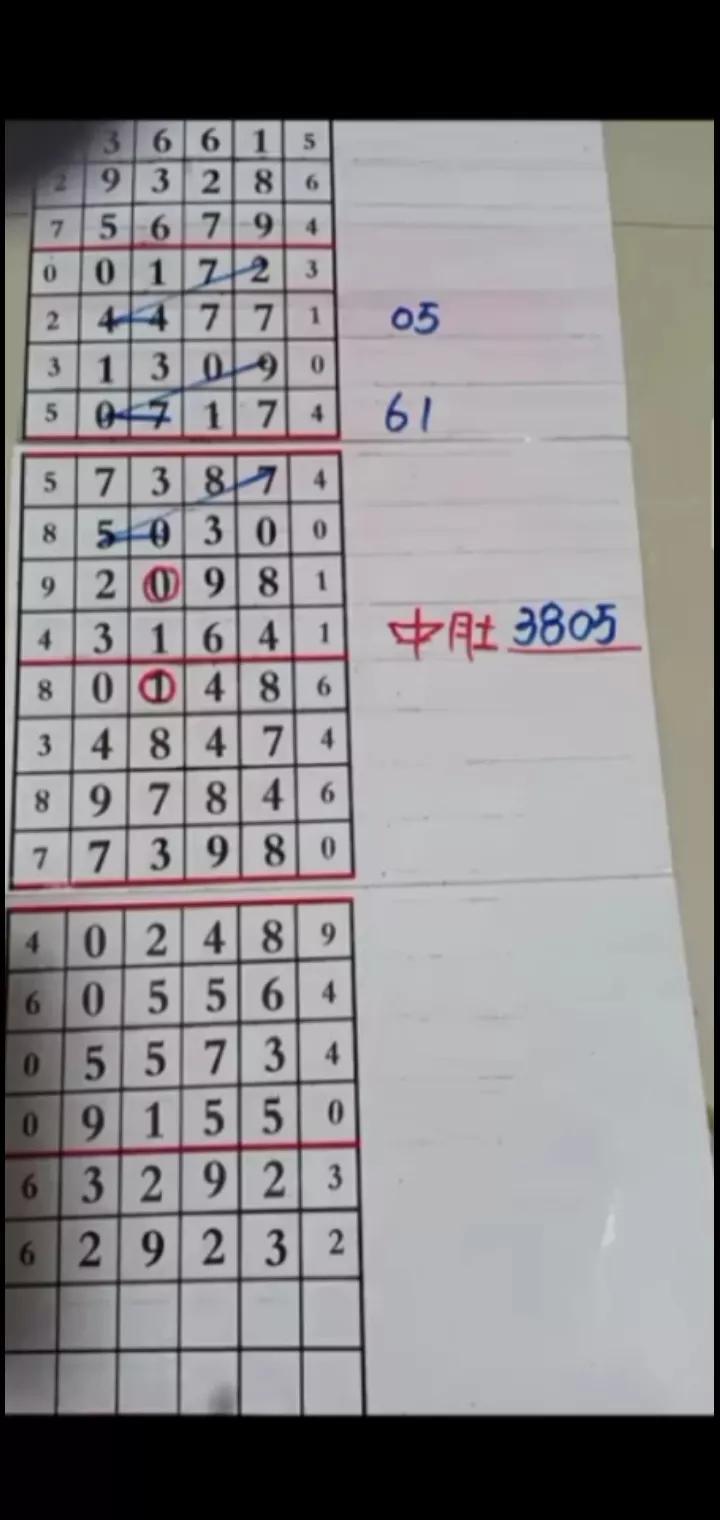 3 6 6 1 5
2 9 3 2 8 6
7 5 6 7 9 4
0 0 1 7 2 3
2 4 4 7 7 1 05
3 1 3 0 9 0
5 0 7 1 7 4 61
5 7 3 8 7 4
8 5 0 3 0 0
9 2 0 9 8 1
4 3 1 6 4 1 中肚 3805
8 0 1 4 8 6
3 4 8 4 7 4
8 9 7 8 4 6
7 7 3 9 8 0
4 0 2 4 8 9
6 0 5 5 6 4
0 5 5 7 3 4
0 9 1 5 5 0
6 3 2 9 2 3
6 2 9 2 3 2